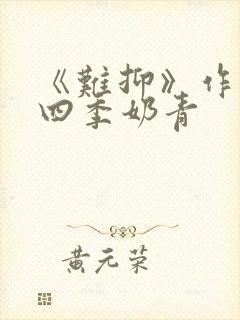 《難抑》作
四季奶青
黄元荣